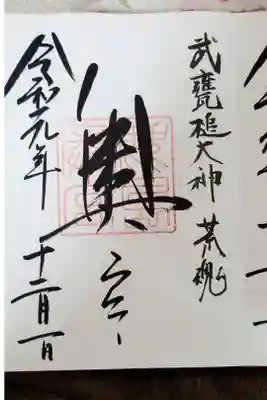 武甕槌大神 荒魂
奥宮
令和元年 十二月一日